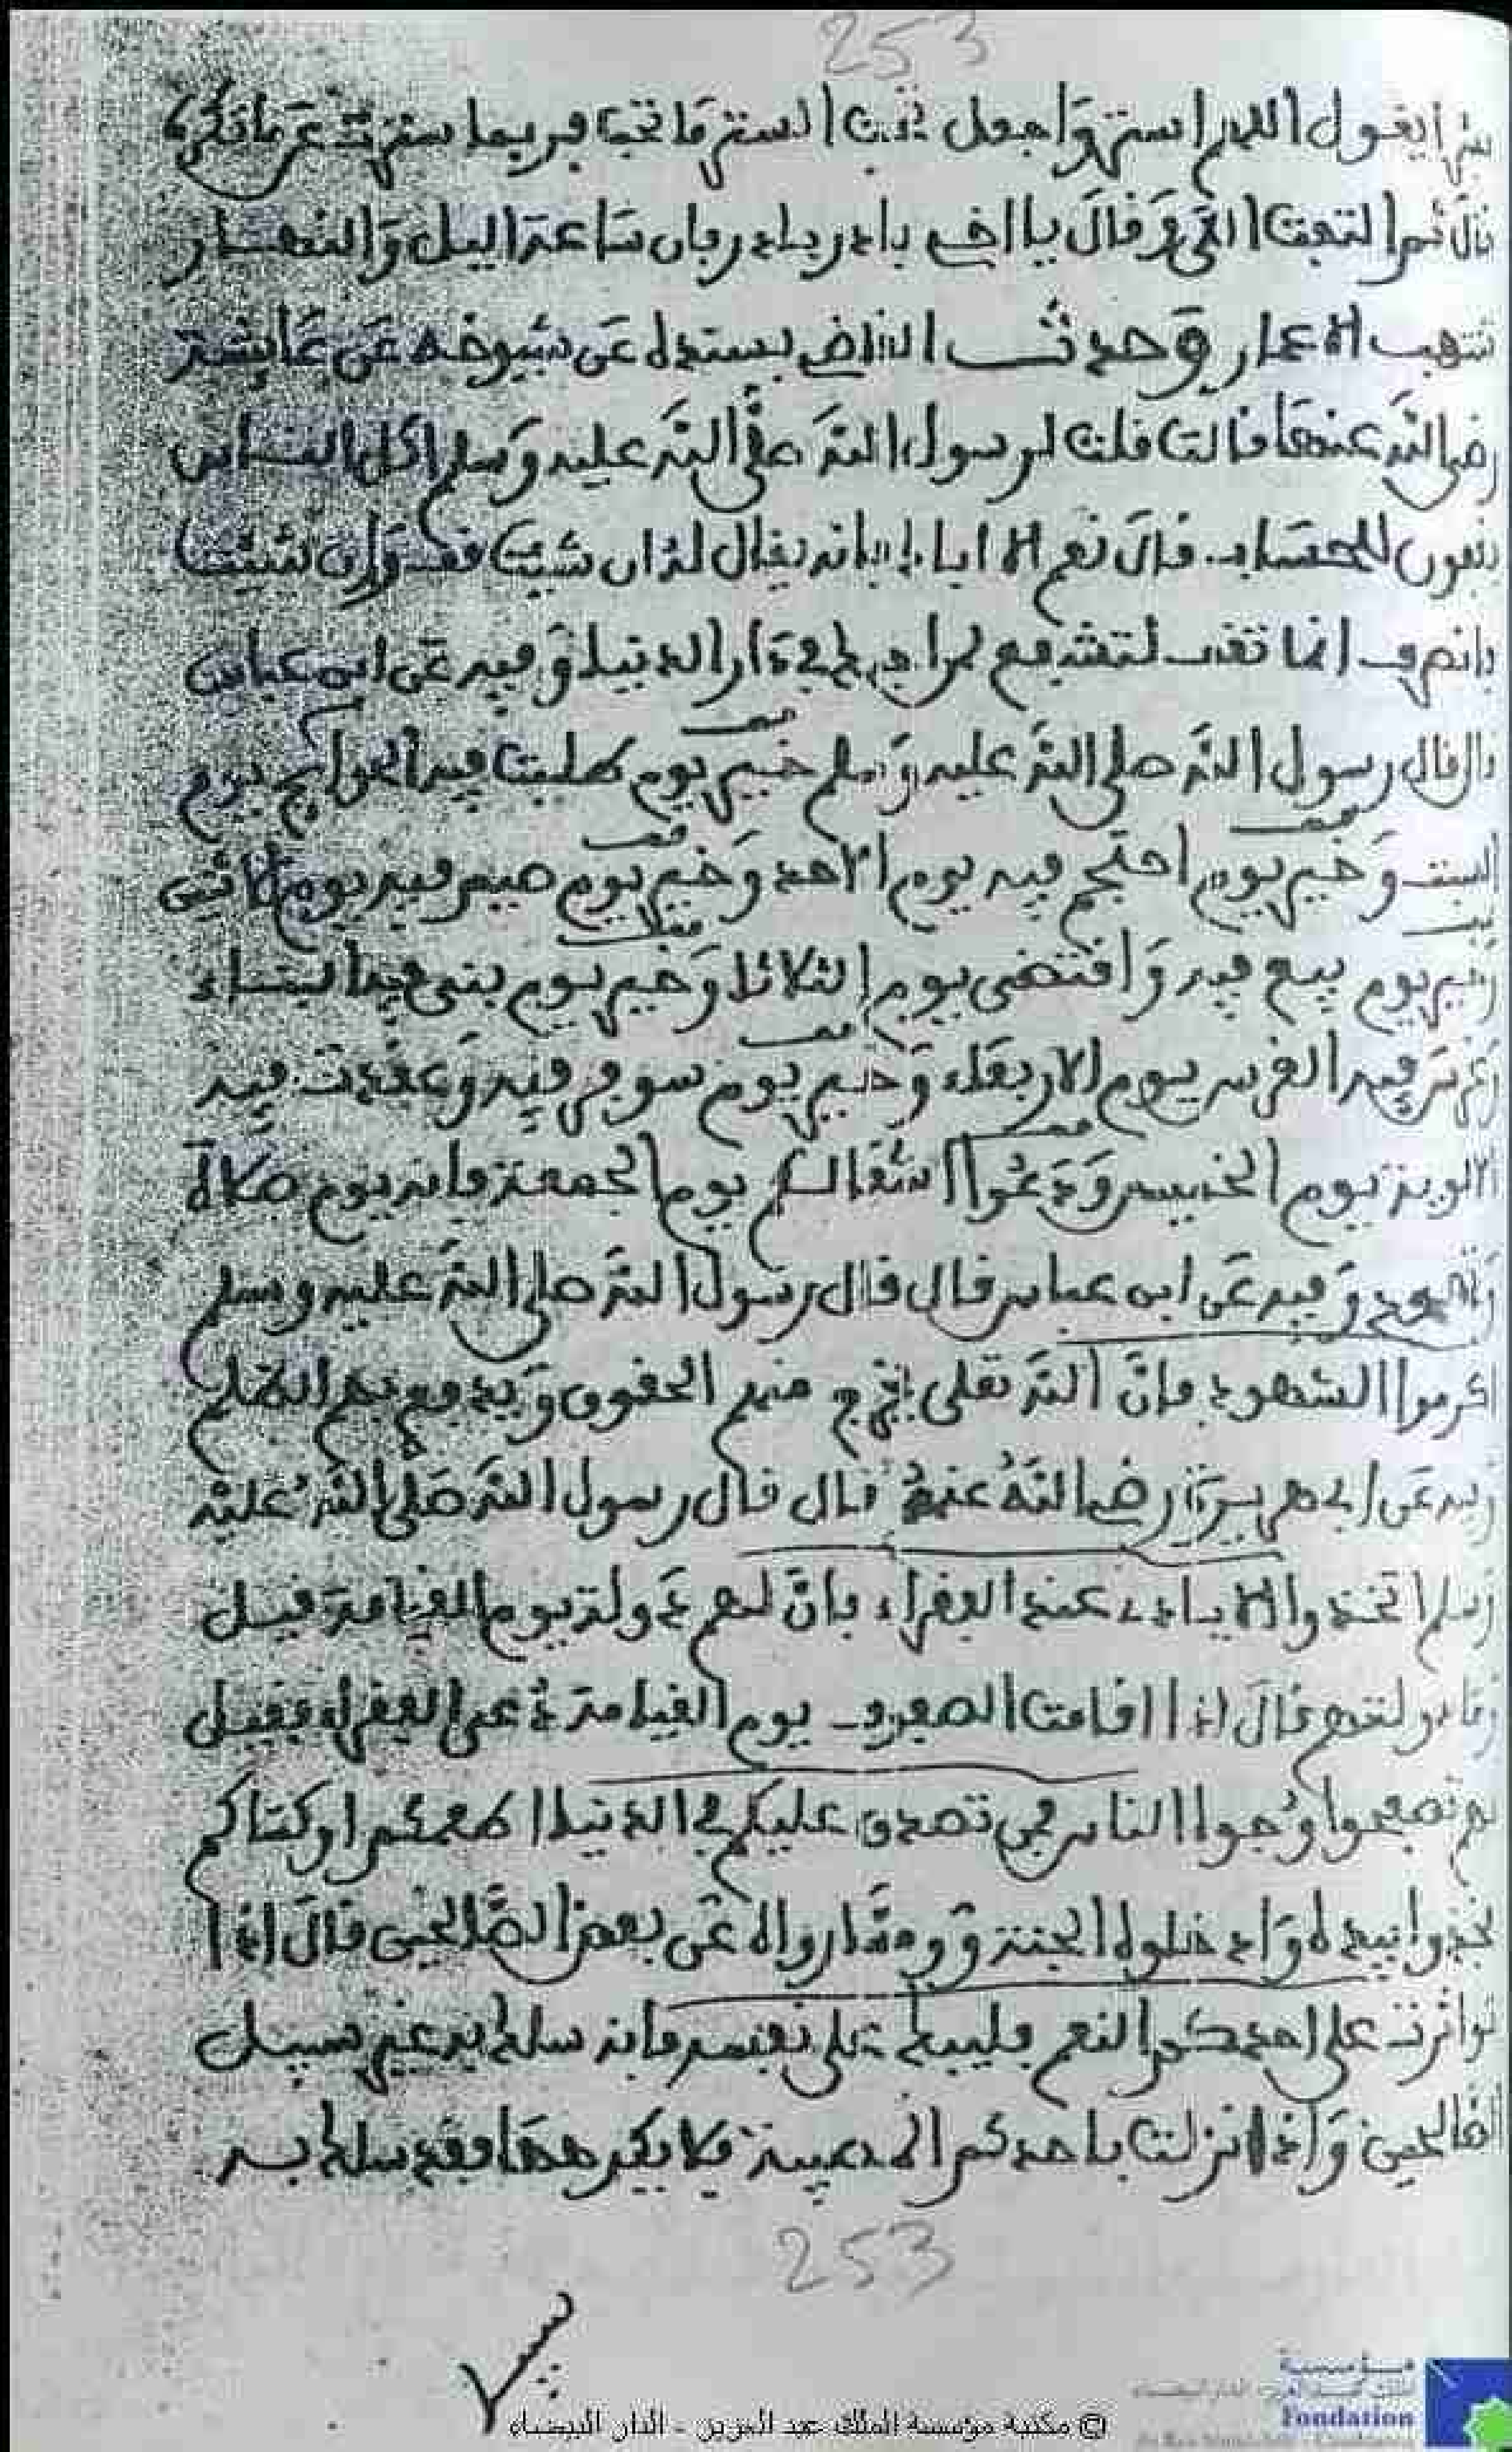 253
يقول اللهم استر واجعل تحت الستر ما تحب فربما سترت على ما تكره
قال ثم التفت الي وقال يا اخي بادر بادر فان ساعة اليل والنهار
تنهب الاعمار وحدث القاضي بسنده عن شيوخه عن عايشة
رضي الله عنها قالت قلت لرسول الله صلى الله عليه وسلم اكل الناس
يقفون للحساب قال نعم الا ابا فانه يقال له ان شيت فقف وان شيت
فانصرف انما تقف لتشفع لمن في دار الدنيا وفيه عن ابن عباس
قال قال رسول الله صلى الله عليه وسلم خير يوم طلبت فيه الحوايج يوم
السبت وخير يوم احتجم فيه يوم الاحد وخير يوم صيم فيه يوم الاثنين
وخير يوم بيع فيه واقتضى يوم الثلاثا وخير يوم بني فيه البناء
وغرس فيه الغرس يوم الاربعاء وخير يوم سوفر فيه وعقدت فيه
الالوية يوم الخميس ودعوا اشغالكم يوم الجمعة فانه يوم صلاة
وفيه عن ابن عباس قال قال رسول الله صلى الله عليه وسلم
اكرموا الشهود فان الله تعلى يخرج منهم الحقوق ويدفع بهم الظلم
وفيه عن ابي هريرة رضي الله عنه قال قال رسول الله صلى الله عليه
وسلم اتخذوا الايادي عند الفقراء فان لهم دولة يوم القيامة قيل
وما دولتهم قال اذا اقامت الصفوف يوم القيامة دعي الفقراء فقيل
لهم تصفحوا وجوا الناس فمن تصدق عليكم في الدنيا اطعمكم او كساكم
فخذوا بيده وادخلوه الجنة ومما رواه عن بعض الصالحين قال اذا
تواترت على احدكم النعم فليبك على نفسه فانه سلك به غير سبيل
الصالحين واذا نزلت باحدكم المصيبة فلا يكرهها فقد سلك به
253
© مكتبة مؤسسة الملك عبد العزيز - الدار البيضاء
مؤسسة
Fondation